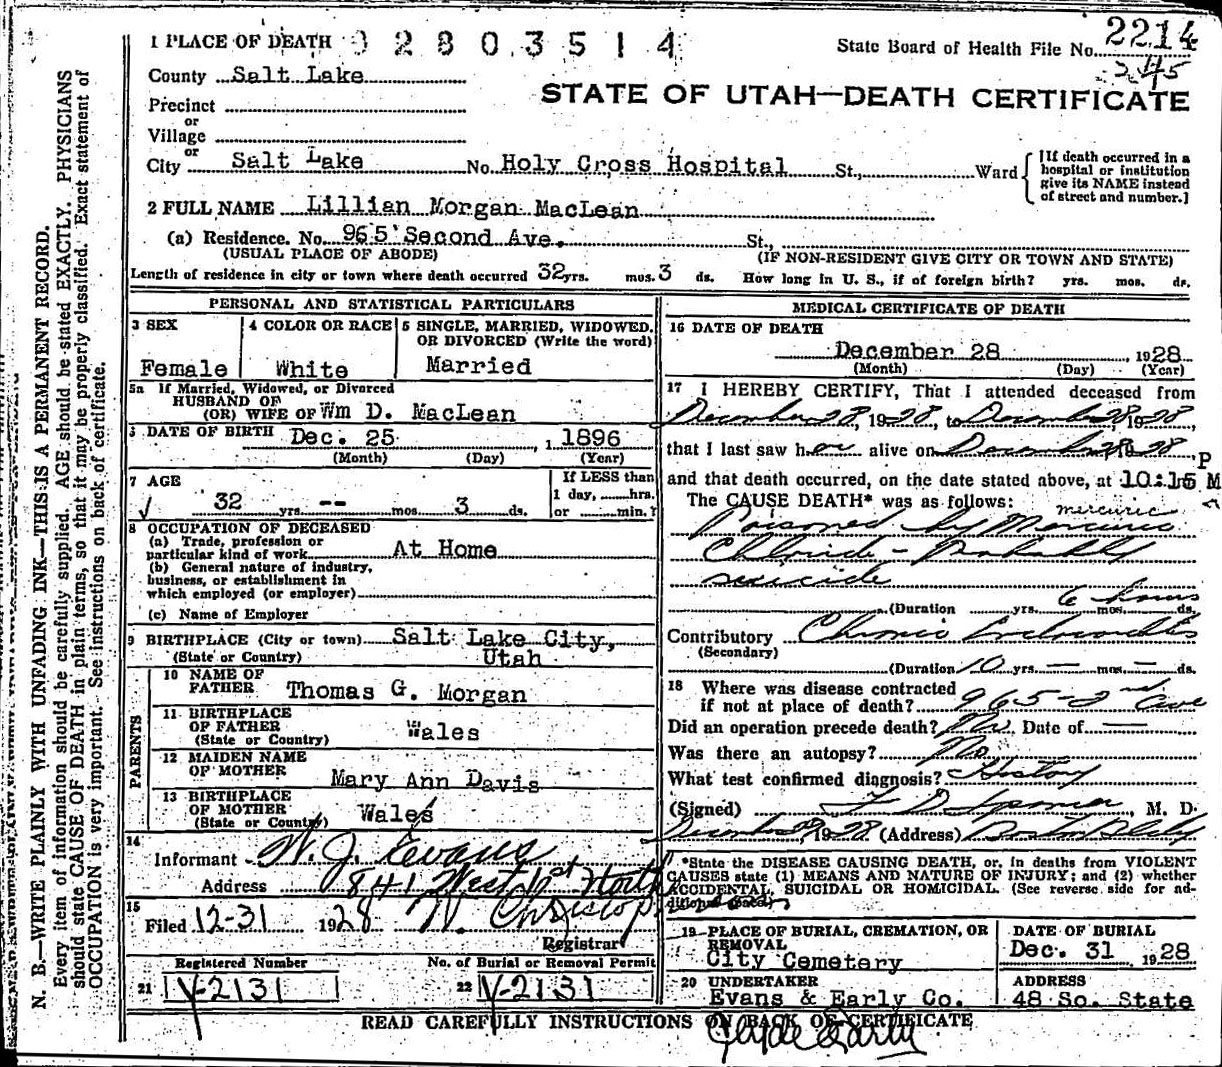 1 PLACE OF DEATH 2 8 0 3 5 1 4
State Board of Health File No. 2214
245
County Salt Lake
STATE OF UTAH—DEATH CERTIFICATE
Precinct
or
Village
or
City Salt Lake No. Holy Cross Hospital St., Ward
[If death occurred in a
hospital or institution
give its NAME instead
of street and number.]
2 FULL NAME Lillian Morgan MacLean
(a) Residence. No. 965 Second Ave. St.,
(USUAL PLACE OF ABODE) (IF NON-RESIDENT GIVE CITY OR TOWN AND STATE)
Length of residence in city or town where death occurred 32 yrs. mos. 3 ds. How long in U. S., if of foreign birth? yrs. mos. ds.
PERSONAL AND STATISTICAL PARTICULARS
3 SEX
Female
4 COLOR OR RACE
White
5 SINGLE, MARRIED, WIDOWED,
OR DIVORCED (Write the word)
Married
5a If Married, Widowed, or Divorced
HUSBAND OF
(OR) WIFE OF Wm D. MacLean
6 DATE OF BIRTH Dec. 25 , 1896
(Month) (Day) (Year)
7 AGE
32 yrs. -- mos. 3 ds.
If LESS than
1 day, hrs.
or min.?
8 OCCUPATION OF DECEASED
(a) Trade, profession or
particular kind of work At Home
(b) General nature of industry,
business, or establishment in
which employed (or employer)
(c) Name of Employer
9 BIRTHPLACE (City or town) Salt Lake City,
(State or Country) Utah
PARENTS
10 NAME OF
FATHER Thomas G. Morgan
11 BIRTHPLACE
OF FATHER Wales
(State or Country)
12 MAIDEN NAME
OF MOTHER Mary Ann Davis
13 BIRTHPLACE
OF MOTHER Wales
(State or Country)
14
Informant W. J. Evans
Address 841 West 1st North
15
Filed 12-31 1928
Registrar
Registered Number
21 V-2131
No. of Burial or Removal Permit
22 V-2131
MEDICAL CERTIFICATE OF DEATH
16 DATE OF DEATH
December 28 , 1928
(Month) (Day) (Year)
17 I HEREBY CERTIFY, That I attended deceased from
December 28, 1928, to December 28 1928,
that I last saw her alive on December 28 1928,
and that death occurred, on the date stated above, at 10:15 P M
The CAUSE DEATH* was as follows: mercuric
Poisoned by Mercuric
Chloride - Probably
suicide
(Duration yrs. 6 hours mos. ds.
Contributory Chronic
(Secondary)
(Duration 10 yrs. — mos. — ds.
18 Where was disease contracted
if not at place of death? 965-2nd Ave
Did an operation precede death? No. Date of
Was there an autopsy? No
What test confirmed diagnosis? History
(Signed) M. D.
December 1928 (Address)
*State the DISEASE CAUSING DEATH, or, in deaths from VIOLENT
CAUSES state (1) MEANS AND NATURE OF INJURY; and (2) whether
ACCIDENTAL, SUICIDAL OR HOMICIDAL. (See reverse side for ad-
ditional space.)
19 PLACE OF BURIAL, CREMATION, OR
REMOVAL
City Cemetery
DATE OF BURIAL
Dec. 31 , 1928
20 UNDERTAKER
Evans & Early Co.
ADDRESS
48 So. State
READ CAREFULLY INSTRUCTIONS ON BACK OF CERTIFICATE
Clyde Early
N. B.—WRITE PLAINLY WITH UNFADING INK—THIS IS A PERMANENT RECORD.
Every item of information should be carefully supplied. AGE should be stated EXACTLY. PHYSICIANS
should state CAUSE OF DEATH in plain terms, so that it may be properly classified. Exact statement of
OCCUPATION is very important. See instructions on back of certificate.